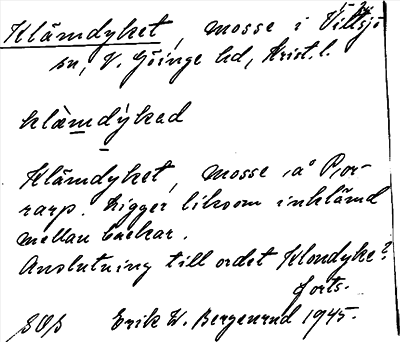 Klämdyket, mosse i Vittsjö
sn, V. Göinge hd, Krist. l.
klä̀mdýkad
Klämdyket, mosse å Por-
rarp. Ligger liksom inklämd
mellan backar.
Anslutning till ordet Klondyke?
forts.
Erik W. Bergenrud 1945.